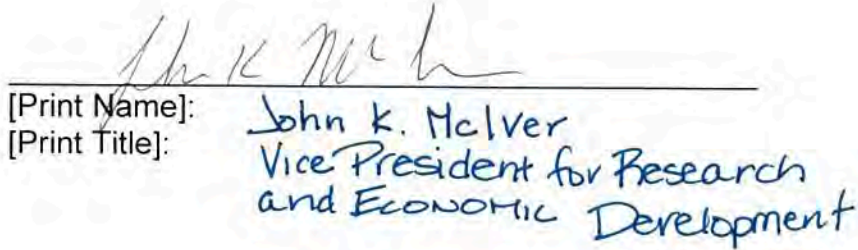 John K Mc
[Print Name]: John K. McIver
[Print Title]: Vice President for Research
and Economic Development